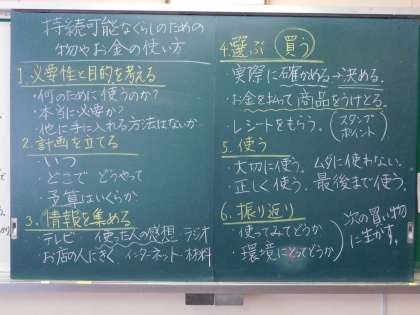 持続可能なくらしのための
物やお金の使い方
1.必要性と目的を考える
・何のために使うのか?
・本当に必要か?
・他に手に入れる方法はないか
2.計画を立てる
・いつ
・どこで どうやって
・予算はいくらか
3.情報を集める
・テレビ・使った人の感想 ラジオ
・お店の人にきく インターネット・材料
4.選ぶ 買う
・実際に確かめる→決める。
・お金を払って商品をうけとる。
・レシートをもらう。(スタンプ
ポイント)
5.使う
・大切に使う。ムダに使わない。
・正しく使う。最後まで使う。
6.振り返り
・使ってみてどうか
・環境にとってどうか
次の買い物
に生かす。